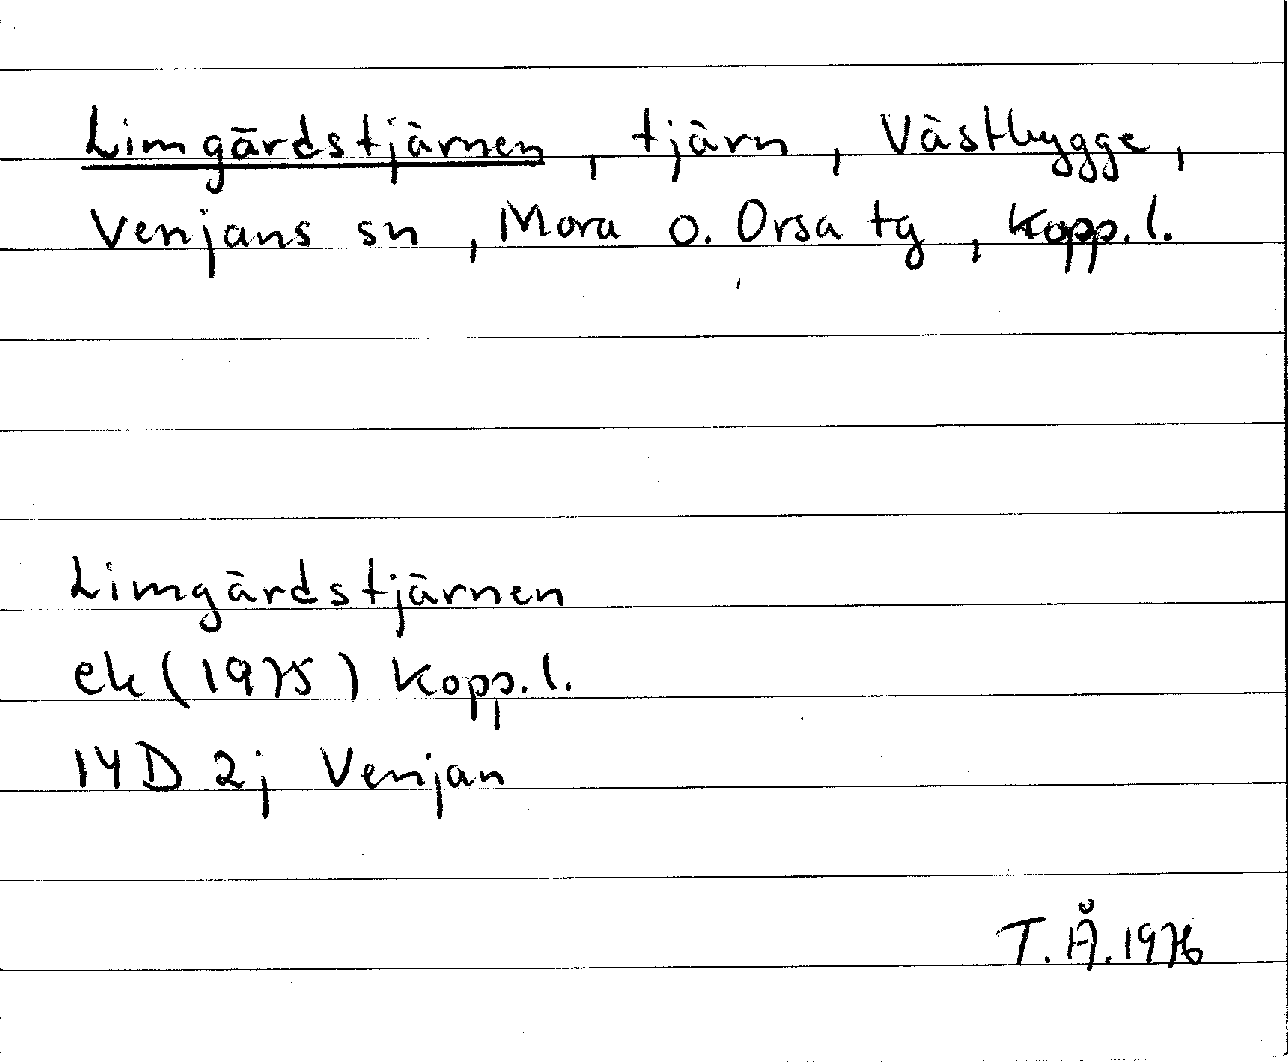 Limgärdstjärnen, tjärn, Västbygge,
Venjans sn, Mora o. Orsa tg, Kopp. l.
Limgärdstjärnen
ek (1975) Kopp. l.
14D 2j Venjan
T. Å. 1976